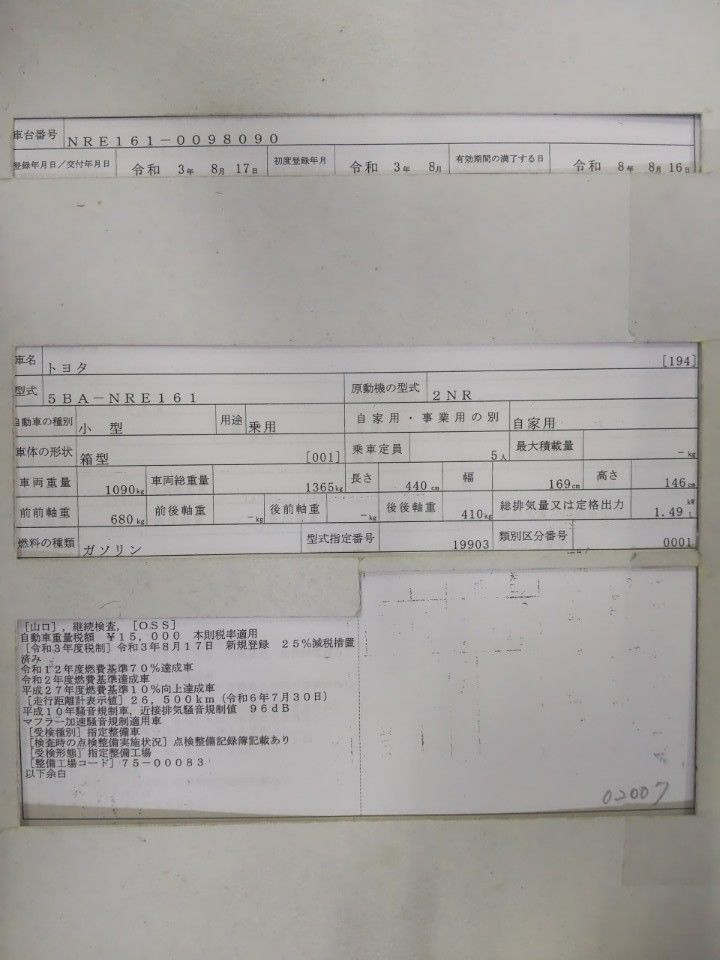 車台番号 NRE161-0098090
登録年月日/交付年月日 令和 3年 8月 17日 初度登録年月 令和 3年 8月 有効期間の満了する日 令和 8年 8月 16日
車名 トヨタ [194]
型式 5BA-NRE161 原動機の型式 2NR
自動車の種別 小型 用途 乗用 自家用・事業用の別 自家用
車体の形状 箱型 [001] 乗車定員 5人 最大積載量 -kg
車両重量 1090kg 車両総重量 1365kg 長さ 440cm 幅 169cm 高さ 146cm
前前軸重 680kg 前後軸重 -kg 後前軸重 -kg 後後軸重 410kg 総排気量又は定格出力 1.49 kW L
燃料の種類 ガソリン 型式指定番号 19903 類別区分番号 0001
[山口],継続検査,[OSS]
自動車重量税額 ¥15,000 本則税率適用
[令和3年度税制]令和3年8月17日 新規登録 25%減税措置
済み
令和12年度燃費基準70%達成車
令和2年度燃費基準達成車
平成27年度燃費基準10%向上達成車
[走行距離計表示値]26,500km(令和6年7月30日)
平成10年騒音規制車,近接排気騒音規制値 96dB
マフラー加速騒音規制適用車
[受検種別]指定整備車
[検査時の点検整備実施状況]点検整備記録簿記載あり
[受検形態]指定整備工場
[整備工場コード]75-00083
以下余白
02007